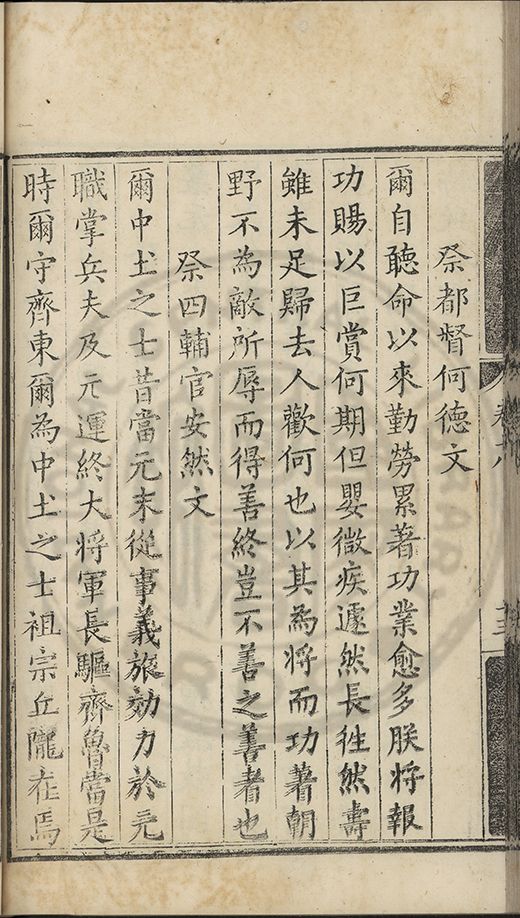 祭都督何德文
爾自聽命以來勤勞累著功業愈多朕將報
功賜以巨賞何期但嬰微疾遽然長徃然壽
雖未足歸去人歡何也以其為將而功著朝
野不為敵所辱而得善終豈不善之善者也
祭四輔官安然文
爾中土之士昔當元末從事義旅効力於元
職掌兵夫及元運終大將軍長驅齊魯當是
時爾守齊東爾為中土之士祖宗丘隴在焉